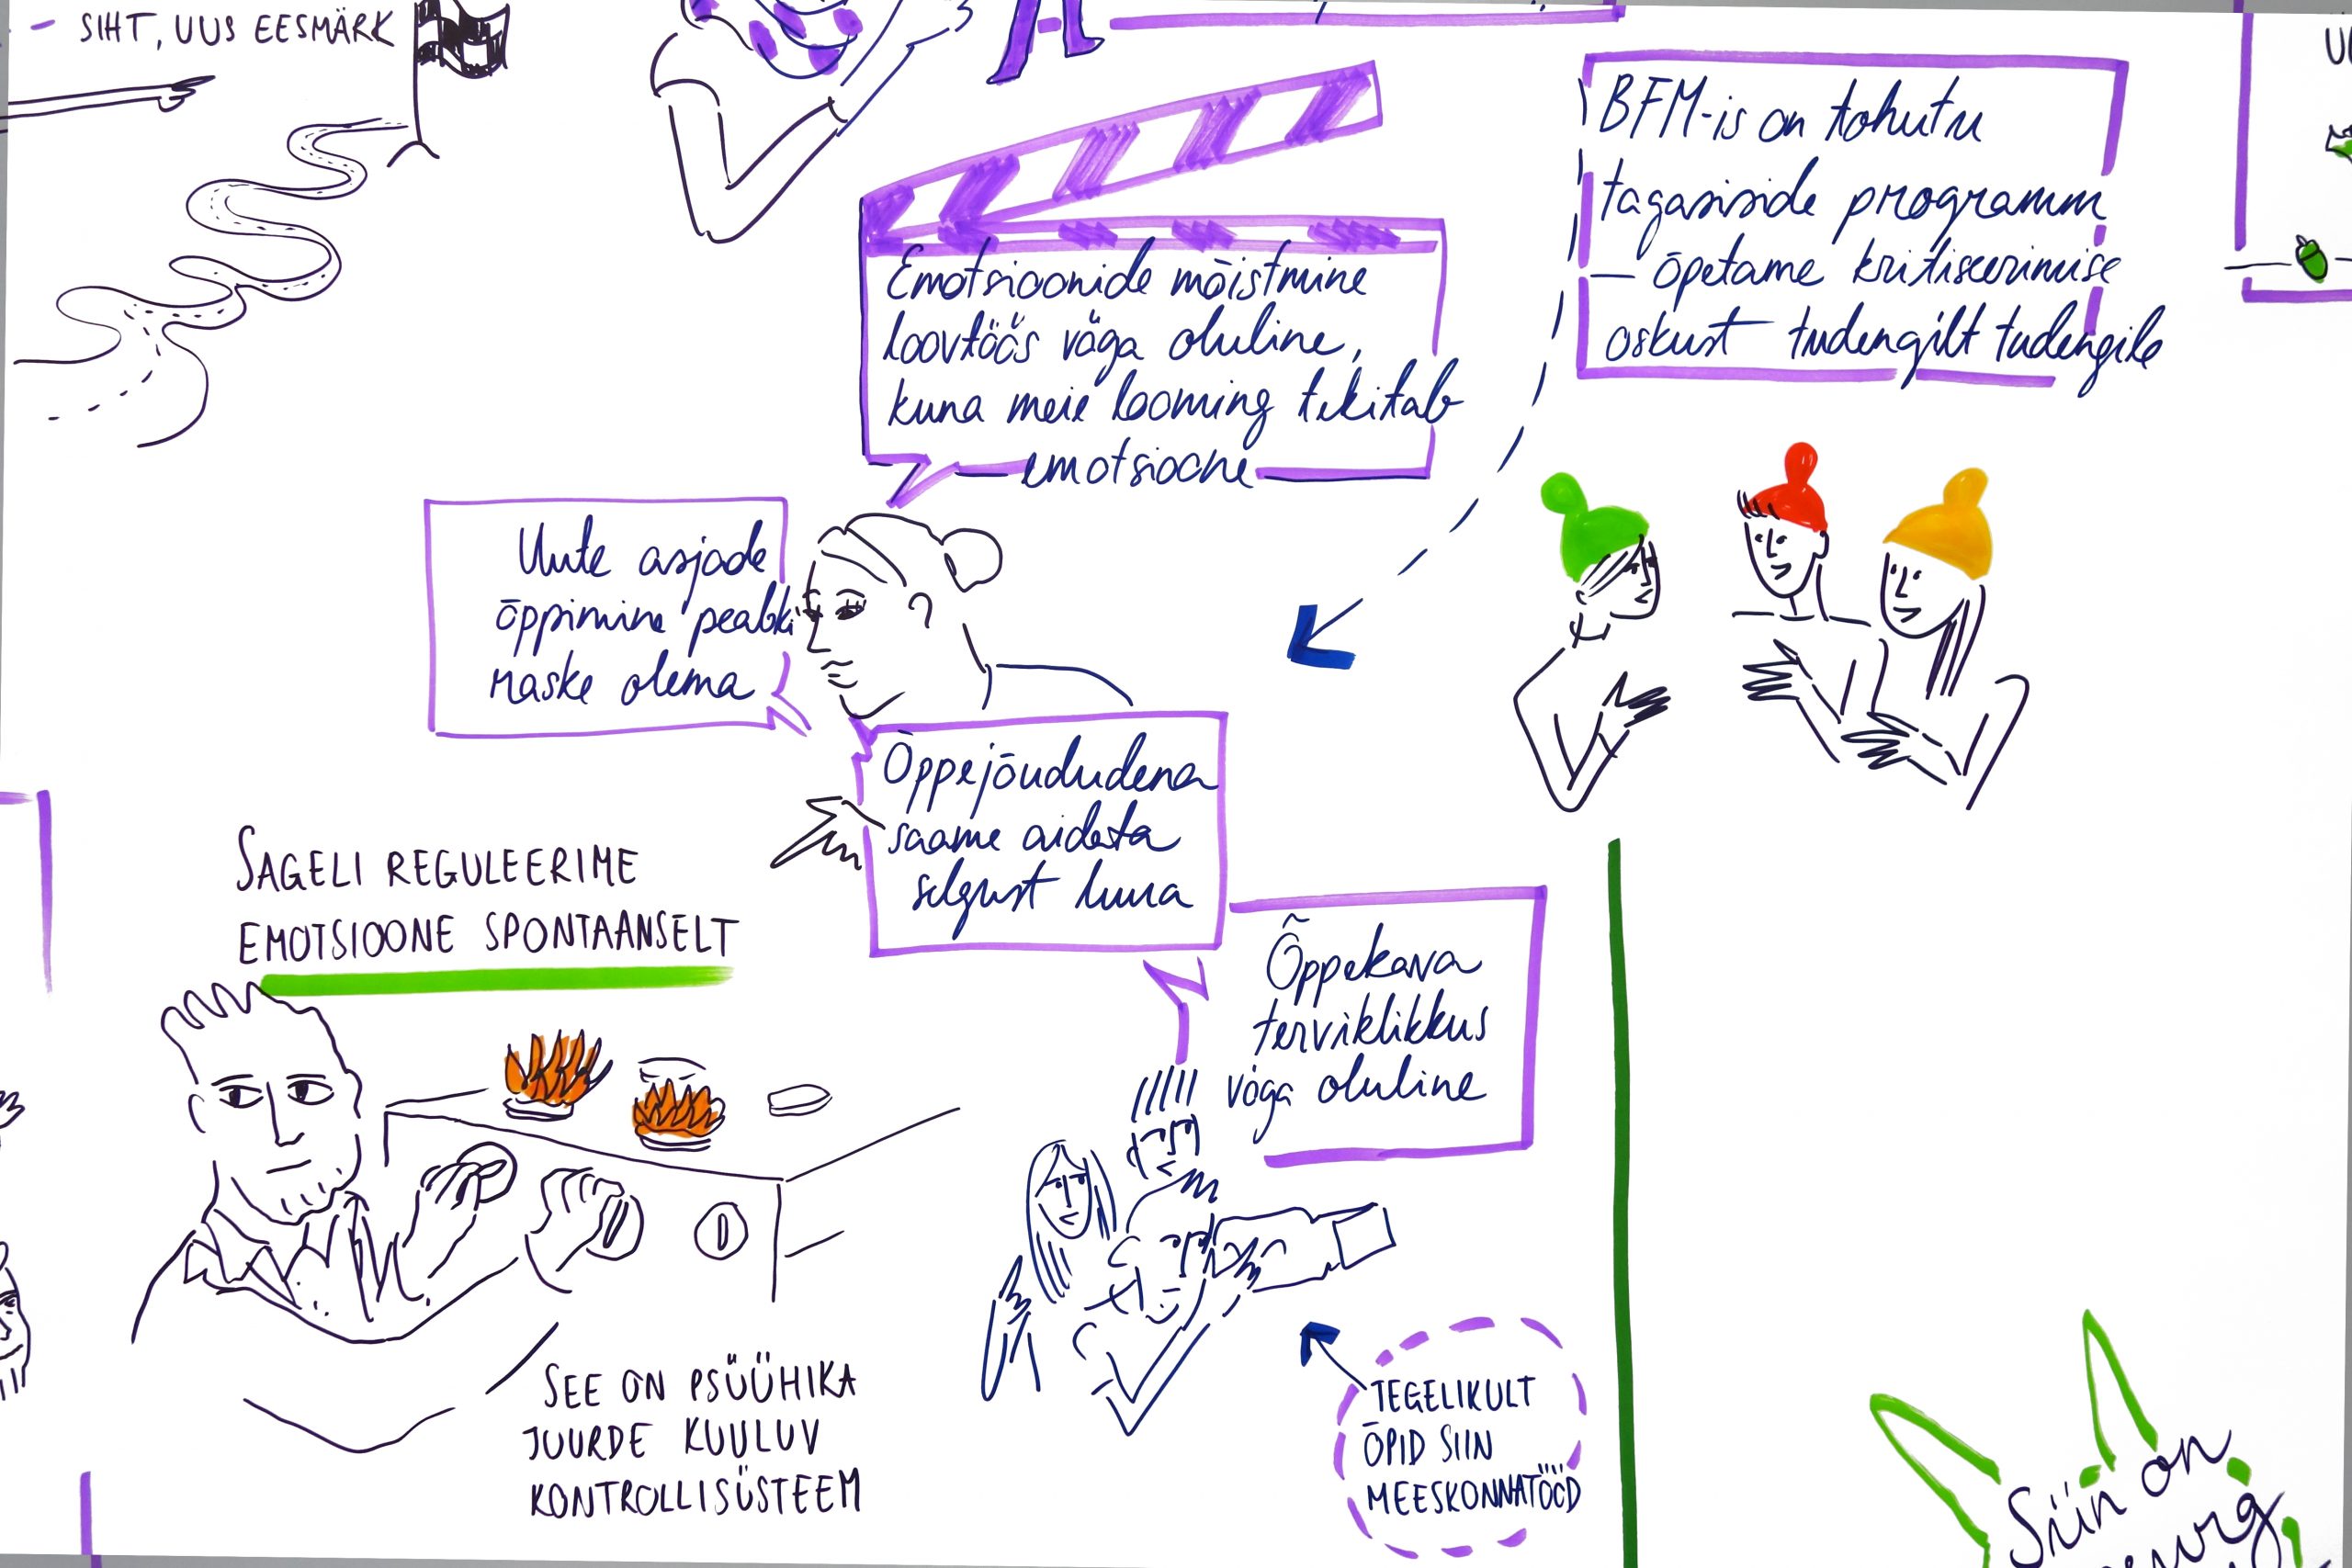 - SIHT, UUS EESMÄRK
A
BFM-is on tohutu
tagasiside programm
– õpetame kritiseerimise
oskust tudengilt tudengile
Emotsioonide mõistmine
loovtöös väga oluline,
kuna meie looming tekitab
emotsioone
Uute asjade
õppimine peabki
raske olema
Õppejõududena
saame aidata
selgust luua
Õppekava
terviklikkus
väga oluline
SAGELI REGULEERIME
EMOTSIOONE SPONTAANSELT
SEE ON PSÜÜHIKA
JUURDE KUULUV
KONTROLLISÜSTEEM
TEGELIKULT
ÕPID SIIN
MEESKONNATÖÖD
Siin on